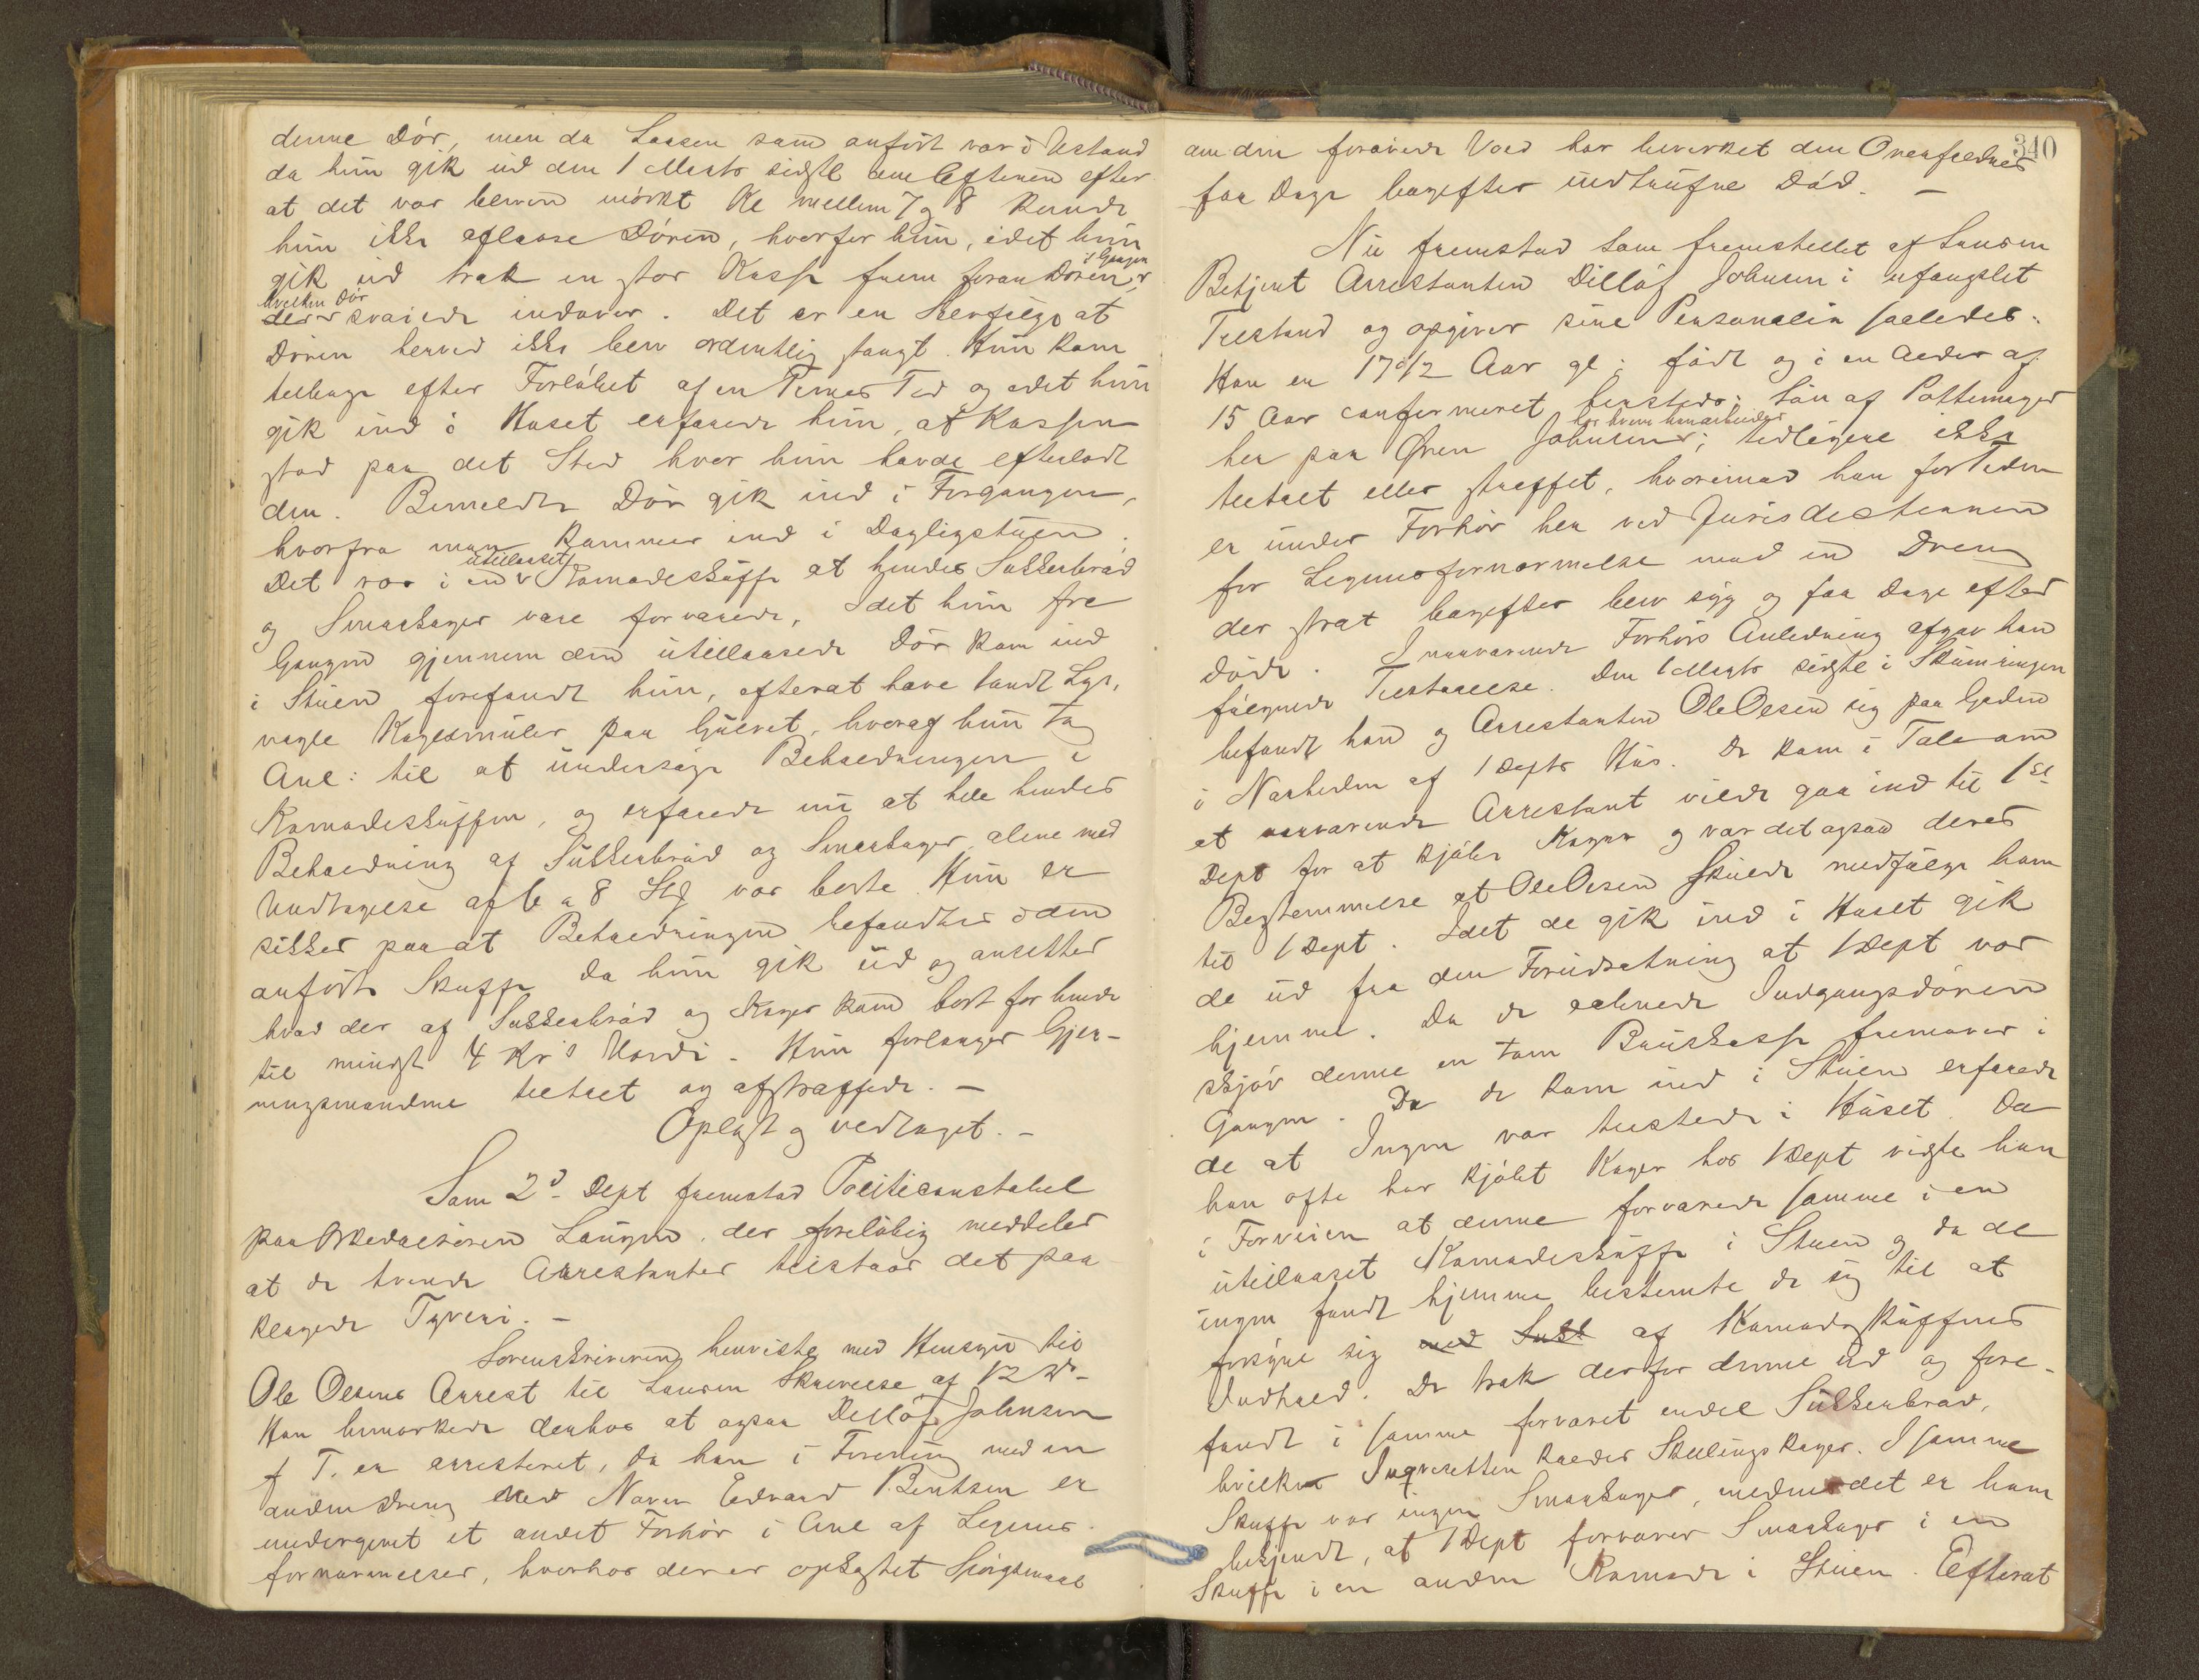 denne Dør, men da Laasen som anført var i Ustand
da hun gik ud den 1 Marts sidstl om Aftenen efter
at det var bleven mørkt Kl mellem 7 og 8 kunde
hun ikke aflaase Døren, hvorfor hun, idet hun
gik ud trak en stor Kasse frem foran Døren, i Gangen
hvilken Dør svaiede indover. Det er en Selvfølge at
Døren herved ikke blev ordentlig stængt. Hun kom
tilbage efter Forløbet af en Times Tid og idet hun
gik ind i Huset erfarede hun, at Kassen
stod paa det Sted hvor hun havde efterladt
den. Bemeldte Dør gik ind i Forgangen,
hvorfra man kommer ind i Dagligstuen.
Det var i en utillaaset Komodeskuffe at hendes Sukkerbrød
og Smaakager vare forvarede, Idet hun fra
Gangen gjennem den utillaasede Dør kom ind
i Stuen forefandt hun, efterat have tændt Lys,
nogle Kagesmuler paa Gulvet, hvoraf hun tog
Anl: til at undersøge Beholdningen i
Komodeskuffen, og erfarede nu at hele hendes
Beholdning af Sukkerbrød og Smaakager alene med
Undtagelse af 6 a 8 Stk var borte. Hun er
sikker paa at Beholdningen befandtes i den
anførte Skuffe da hun gik ud og ansætter
hvad der af Sukkerbrød og Kager kom bort for hende
til mindst 4 Kr's Værdi. Hun forlanger Gjer-
ningsmændene tiltalt og afstraffede. -
Oplæst og vedtaget. -
Som 2d Dept fremstod Politiconstabel
paa Langen. der foreløbig meddeler
at de tvende Arrestanter tilstaar det paa
klagede Tyveri. -
Sorenskriveren henviste med Hensyn til
Ole Olsens Arrest til Skrivelse af 12 ds -
Han bemærkede derhos at ogsaa Detlof Johnsen
f T. er arresteret, da han i Forening med en
anden Dreng ved Navn Edvard Bentsen er
undergivet et andet Forhør i Anl af Legems-
fornærmelser, hvorhos der er opkastet Spørgsmaal
340
om den forøvede Vold har bevirket den Overfaldnes
faa Dage bagefter indtrufne Død. -
Nu fremstod som fremstillet af
Betjent Arrestanten Detlof Johnsen i ufængslet
Tilstand og opgiver sine Personalia saaledes:
Han er 17 1/2 Aar gl; født og i en Alder af
15 Aar confirmeret hersteds; Søn af Pottemager
her paa Øren Johnsen, hos hvem han arbeider; tidligere ikke
tiltalt eller straffet, hvorimod han for Tiden
er under Forhør her ved Jurisdictionen
for Legemsfornærmelse mod en Dreng
der strax bagefter blev syg og faa Dage efter
døde. I nærværende Forhørs Anledning afgav han
følgende Tilstaaelse. Den 1 Marts sidstl i Skumringen
befandt han og Arrestanten Ole Olsen sig paa Gaden
i Nærheden af 1 Depts Hus. De kom i Tale om
at nærværende Arrestant vilde gaa ind til 1st
Dept for at kjøbe Kager og var det ogsaa deres
Bestemmelse at Ole Olsen skulde medfølge ham
til 1 Dept. Idet de gik ind i Huset gik
de ud fra den Forudsætning at 1 Dept var
hjemme. Da de aabnede Indgangsdøren
skjøv denne en tom Kasse fremover i
Gangen. Da de kom ind i Stuen erfarede
de at Ingen var tilstede i Huset. Da
han ofte har kjøbt Kager hos 1 Dept vidste han
i Forveien at denne forvarede samme i en
utillaaset Komodeskuffe i Stuen og da de
ingen fandt hjemme bestemte de sig til at
forsyne sig af Komodeskuffens
Indhold. De trak derfor denne ud og fore-
fandt i samme forvaret endel Sukkerbrød,
hvilke kalder Skillings Kager. I samme
Skuffe var ingen Smaakager, medens det er ham
bekjendt, at 1 Dept forvarer Smaakager i en
Skuffe i en anden Komode i Stuen. Efterat